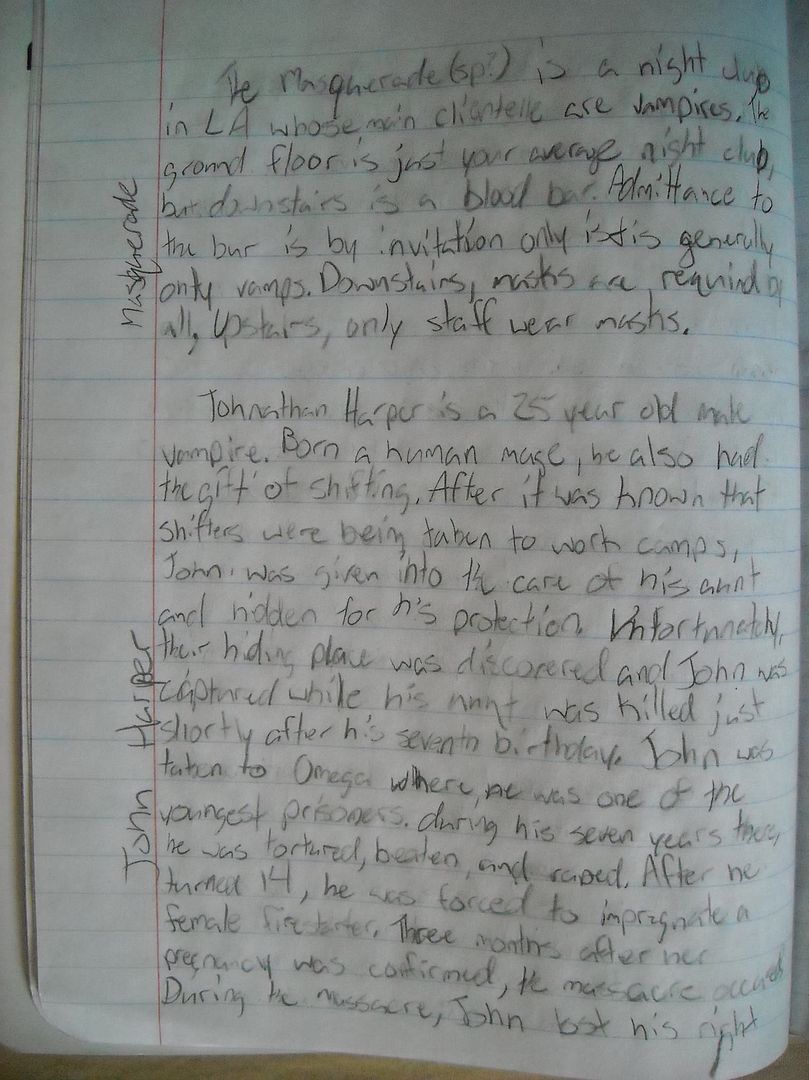 The Masquerade (sp?) is a night club
in LA whose main clientelle are vampires. The
ground floor is just your average night club,
but downstairs is a blood bar. Admittance to
the bar is by invitation only is generally
only vamps. Downstairs, masks are required by
all, Upstairs, only staff wear masks.
Masquerade
Johnathan Harper is a 25 year old male
vampire. Born a human mage, he also had
the gift of shifting. After it was known that
shifters were being taken to work camps,
John was given into the care of his aunt
and hidden for his protection. Unfortunately,
their hiding place was discovered and John was
captured while his aunt was killed just
shortly after his seventh birthday. John was
taken to Omega where, he was one of the
youngest prisoners. during his seven years there,
he was tortured, beaten, and raped. After he
turned 14, he was forced to impregnate a
female firestarter. Three months after her
pregnancy was confirmed, the massacre occured
During the massacre, John lost his right
John Harper